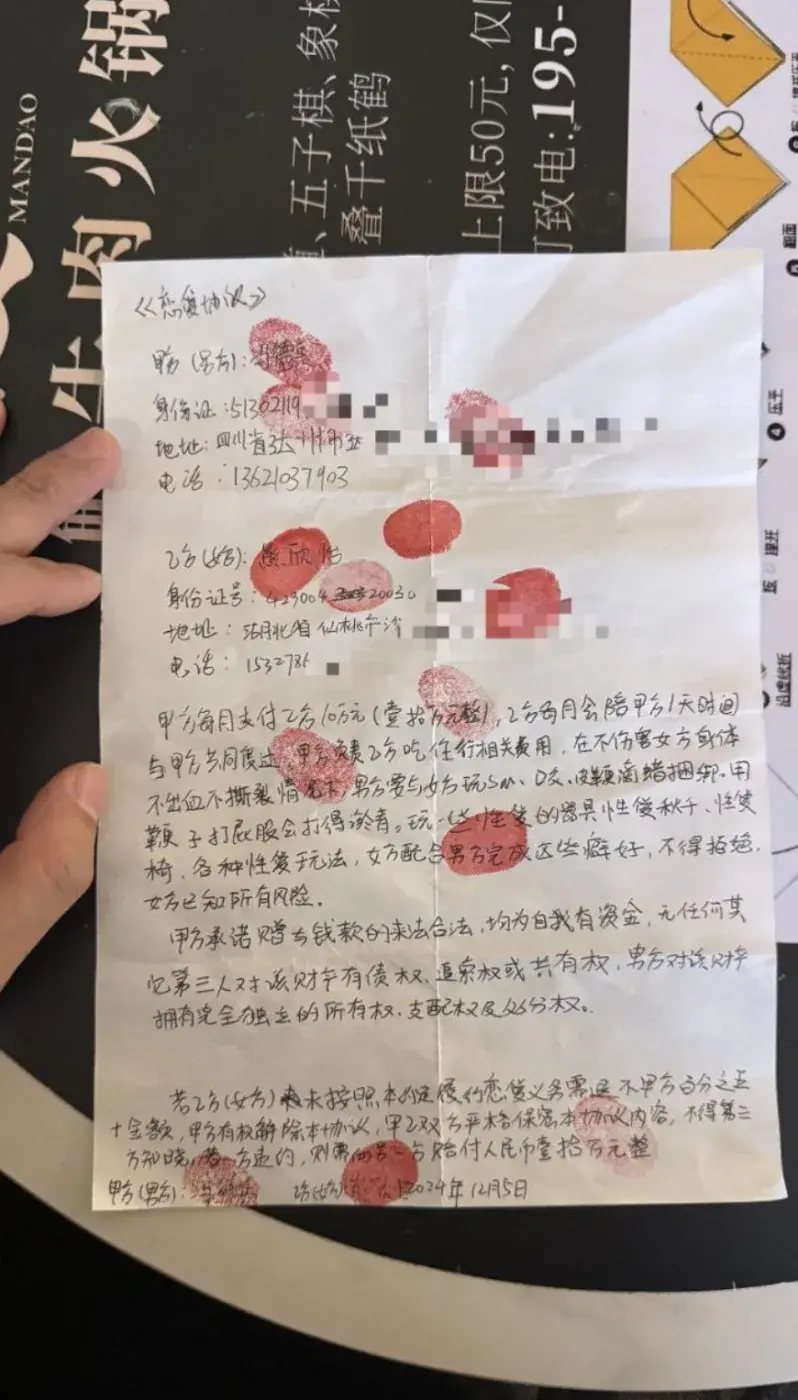 MANDAO
生肉火锅
、五子棋、象棋
叠千纸鹤
上限50元，仅
可致电:195-
《恋爱协议》
甲方（男方）:
身份证:51302119
地址:四川省达州市
电话:13621037903
乙方(女方):欣怡
身份证号:429004 20030
地址:湖北省仙桃市沙
电话:1532786
甲方每月支付乙方10万元(壹拾万元整),乙方每月会陪甲方1天时间
与甲方共同度过,甲方负责乙方吃住行相关费用,在不伤害女方身体
不出血不撕裂情况下,男方要与女方玩sm、口交、皮鞭滴蜡捆绑.用
鞭子打屁股会打得淤青。玩一些性爱的器具性爱秋千、性爱
椅、各种性爱玩法,女方配合男方完成这些癖好,不得拒绝.
女方已知所有风险。
甲方承诺赠与钱款的来法合法,均为自我有资金,无任何其
它第三人对该财产有债权、追索权或共有权,男方对该财产
拥有完全独立的所有权、支配权及处分权。
若乙方(女方)未按照本约定履行恋爱义务需退还甲方百分之五
十金额,甲方有权解除本协议,甲乙双方严格保密本协议内容,不得第三
方知晓,若一方违约,则需向另一方赔付人民币壹拾万元整
甲方(男方): 乙方(女方): 2024年12月5日
④ 压平